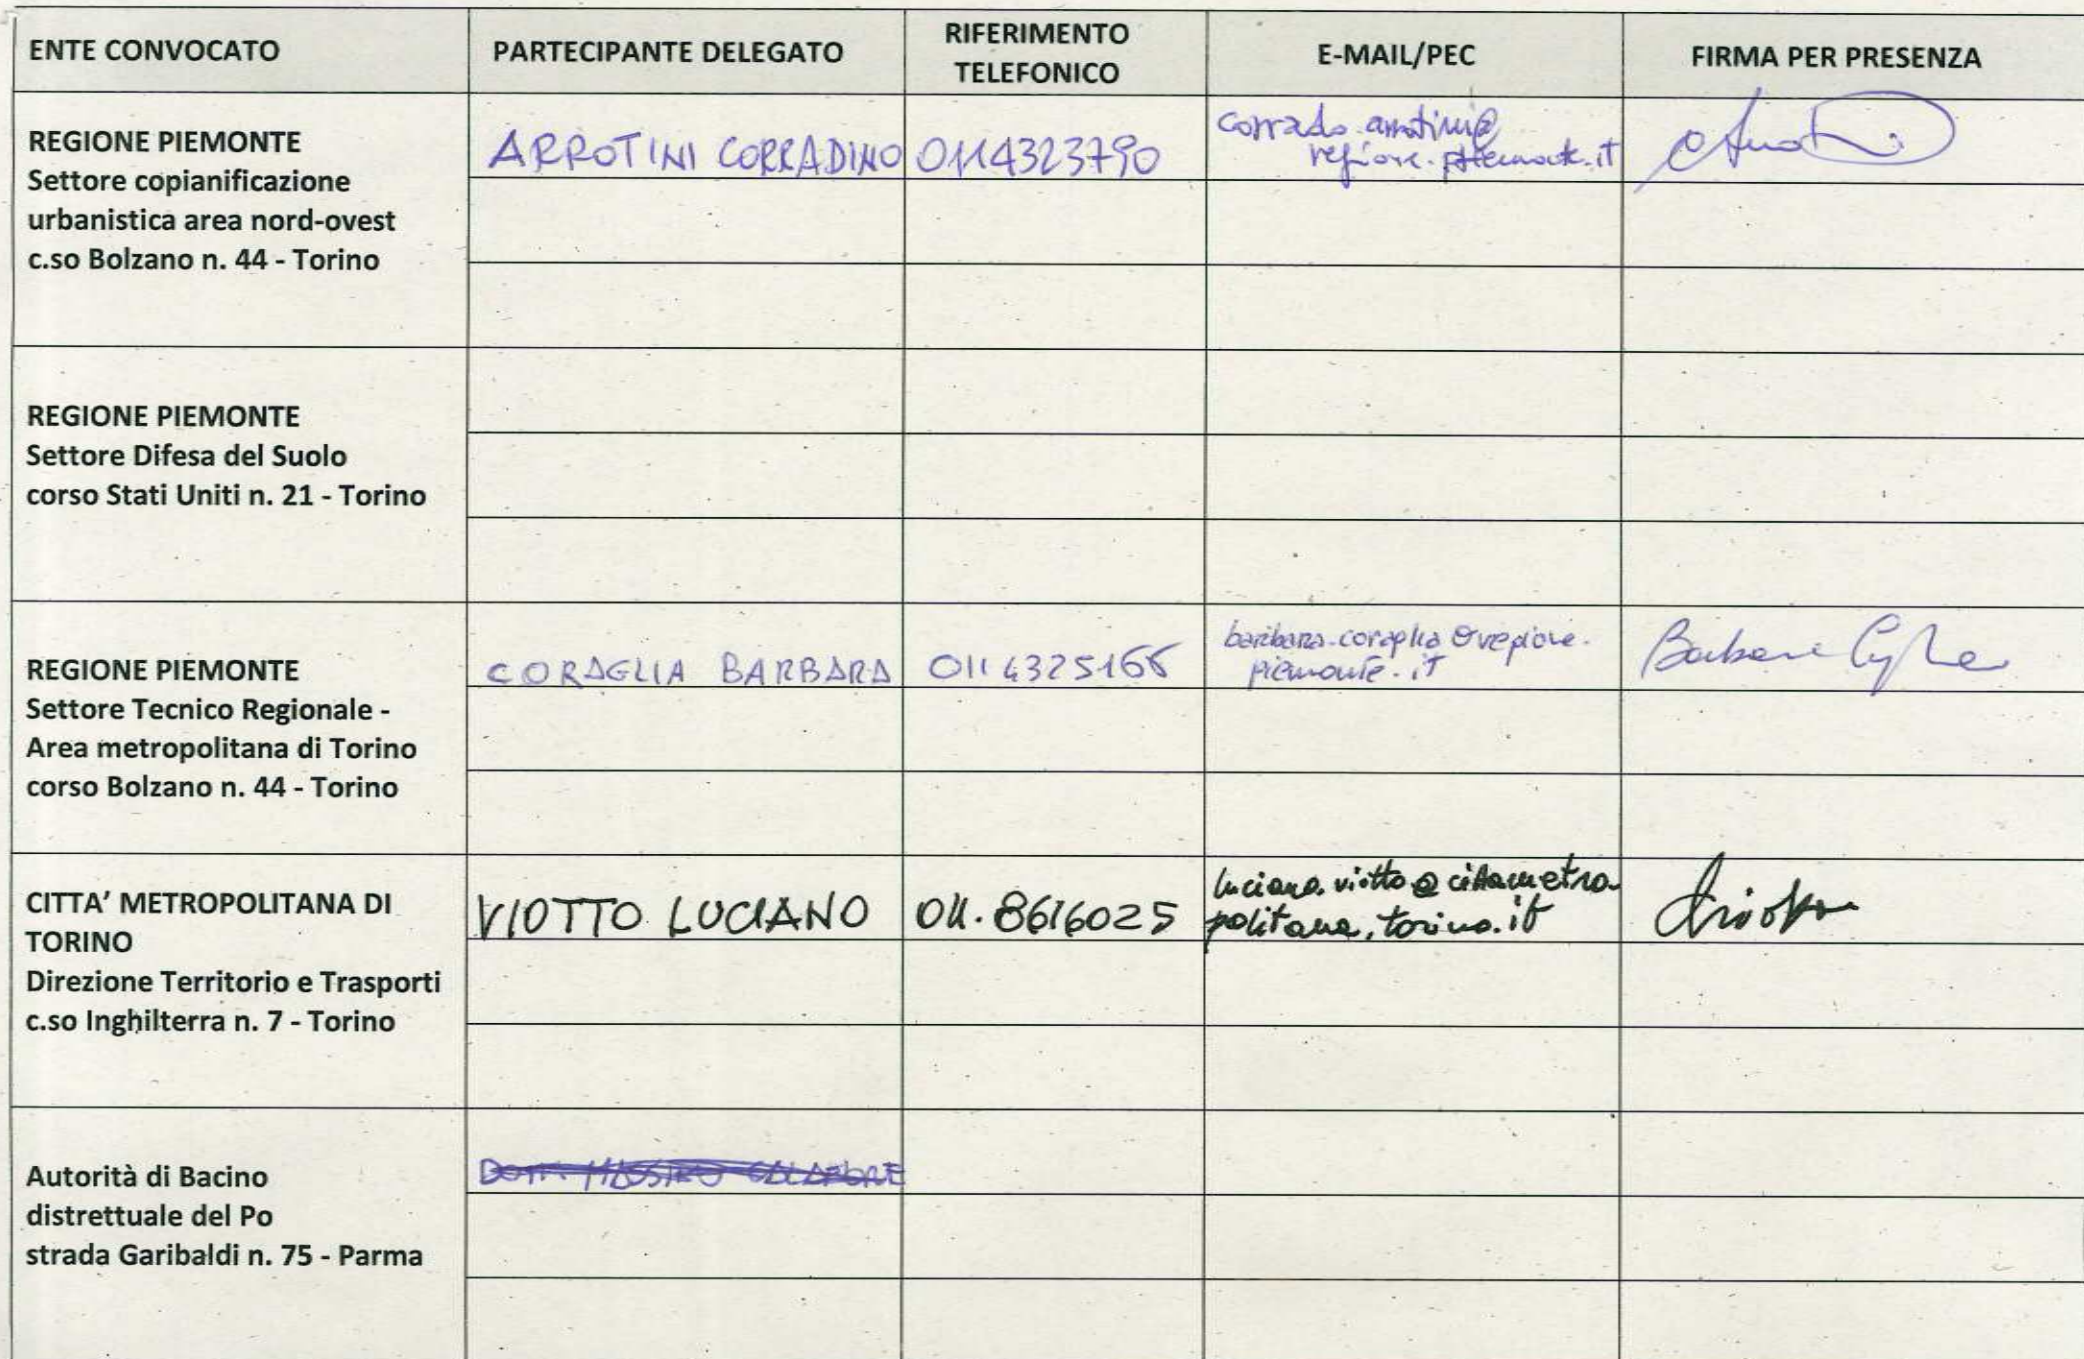 ENTE CONVOCATO
PARTECIPANTE DELEGATO
RIFERIMENTO
TELEFONICO
E-MAIL/PEC
FIRMA PER PRESENZA
REGIONE PIEMONTE
Settore copianificazione
urbanistica area nord-ovest
c.so Bolzano n. 44 - Torino
ARROTINI CORRADINO
0114323790
corrado.arrotini@
regione.piemonte.it
REGIONE PIEMONTE
Settore Difesa del Suolo
corso Stati Uniti n. 21 - Torino
REGIONE PIEMONTE
Settore Tecnico Regionale -
Area metropolitana di Torino
corso Bolzano n. 44 - Torino
CORAGLIA BARBARA
0114325166
barbara.coraglia@regione.
piemonte.it
Barbara
CITTA' METROPOLITANA DI
TORINO
Direzione Territorio e Trasporti
c.so Inghilterra n. 7 - Torino
VIOTTO LUCIANO
011.8616025
luciano.viotto@cittametro
politana.torino.it
Autorità di Bacino
distrettuale del Po
strada Garibaldi n. 75 - Parma